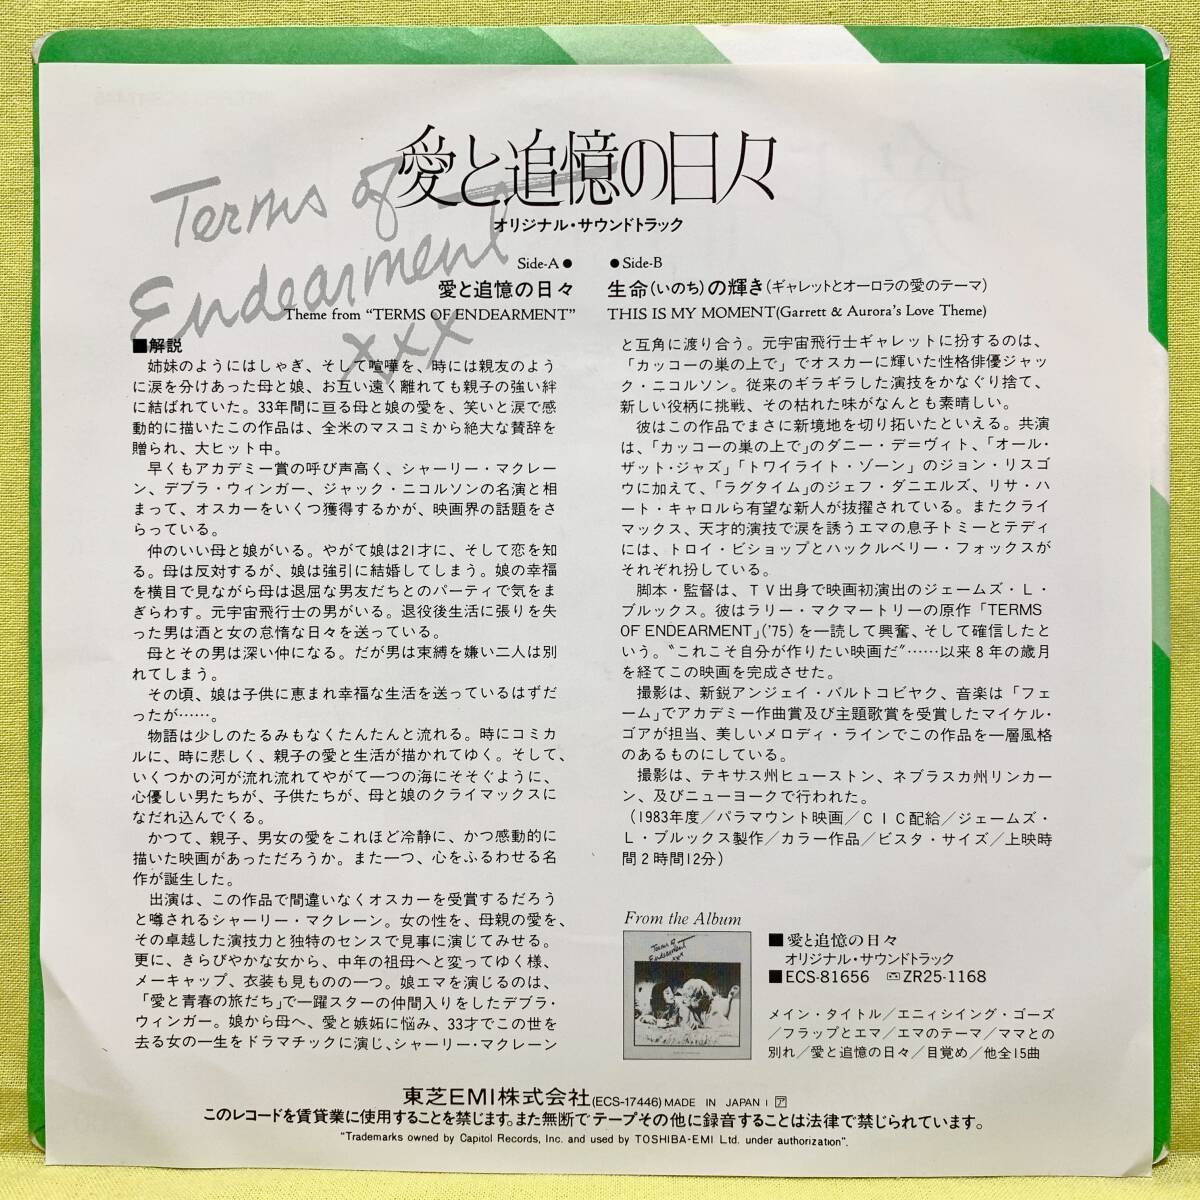 愛と追憶の日々
Terms of
Endearment
xxx
オリジナル・サウンドトラック
Side-A●
愛と追憶の日々
Theme from “TERMS OF ENDEARMENT”
●Side-B
生命(いのち)の輝き(ギャレットとオーロラの愛のテーマ)
THIS IS MY MOMENT(Garrett & Aurora's Love Theme)
■解説
姉妹のようにはしゃぎ、そして喧嘩を、時には親友のよう
に涙を分けあった母と娘、お互い遠く離れても親子の強い絆
に結ばれていた。33年間に亘る母と娘の愛を、笑いと涙で感
動的に描いたこの作品は、全米のマスコミから絶大な賛辞を
贈られ、大ヒット中。
早くもアカデミー賞の呼び声高く、シャーリー・マクレー
ン、デブラ・ウィンガー、ジャック・ニコルソンの名演と相
まって、オスカーをいくつ獲得するかが、映画界の話題をさ
らっている。
仲のいい母と娘がいる。やがて娘は21才に、そして恋を知
る。母は反対するが、娘は強引に結婚してしまう。娘の幸福
を横目で見ながら母は退屈な男友だちとのパーティで気をま
ぎらわす。元宇宙飛行士の男がいる。退役後生活に張りを失
った男は酒と女の怠惰な日々を送っている。
母とその男は深い仲になる。だが男は束縛を嫌い二人は別
れてしまう。
その頃、娘は子供に恵まれ幸福な生活を送っているはずだ
ったが……。
物語は少しのたるみもなくたんたんと流れる。時にコミカ
ルに、時に悲しく、親子の愛と生活が描かれてゆく。そして、
いくつかの河が流れ流れてやがて一つの海にそそぐように、
心優しい男たちが、子供たちが、母と娘のクライマックスに
なだれ込んでくる。
かつて、親子、男女の愛をこれほど冷静に、かつ感動的に
描いた映画があっただろうか。また一つ、心をふるわせる名
作が誕生した。
出演は、この作品で間違いなくオスカーを受賞するだろう
と噂されるシャーリー・マクレーン。女の性を、母親の愛を、
その卓越した演技力と独特のセンスで見事に演じてみせる。
更に、きらびやかな女から、中年の祖母へと変ってゆく様、
メーキャップ、衣装も見ものの一つ。娘エマを演じるのは、
「愛と青春の旅だち」で一躍スターの仲間入りをしたデブラ・
ウィンガー。娘から母へ、愛と嫉妬に悩み、33才でこの世を
去る女の一生をドラマチックに演じ、シャーリー・マクレーン
と互角に渡り合う。元宇宙飛行士ギャレットに扮するのは、
「カッコーの巣の上で」でオスカーに輝いた性格俳優ジャッ
ク・ニコルソン。従来のギラギラした演技をかなぐり捨て、
新しい役柄に挑戦、その枯れた味がなんとも素晴しい。
彼はこの作品でまさに新境地を切り拓いたといえる。共演
は、「カッコーの巣の上で」のダニー・デ＝ヴィト、「オール・
ザット・ジャズ」「トワイライト・ゾーン」のジョン・リスゴ
ウに加えて、「ラグタイム」のジェフ・ダニエルズ、リサ・ハ
ート・キャロルら有望な新人が抜擢されている。またクライ
マックス、天才的演技で涙を誘うエマの息子トミーとテディ
には、トロイ・ビショップとハックルベリー・フォックスが
それぞれ扮している。
脚本・監督は、ＴＶ出身で映画初演出のジェームズ・Ｌ・
ブルックス。彼はラリー・マクマートリーの原作「TERMS
OF ENDEARMENT」('75)を一読して興奮、そして確信したと
いう。“これこそ自分が作りたい映画だ”……以来８年の歳月
を経てこの映画を完成させた。
撮影は、新鋭アンジェイ・バルトコビヤク、音楽は「フェ
ーム」でアカデミー作曲賞及び主題歌賞を受賞したマイケル・
ゴアが担当、美しいメロディ・ラインでこの作品を一層風格
のあるものにしている。
撮影は、テキサス州ヒューストン、ネブラスカ州リンカー
ン、及びニューヨークで行われた。
(1983年度／パラマウント映画／ＣＩＣ配給／ジェームズ・
Ｌ・ブルックス製作／カラー作品／ビスタ・サイズ／上映時
間２時間12分)
From the Album
Terms of
Endearment
xxx
■愛と追憶の日々
オリジナル・サウンドトラック
■ECS-81656 ZR25-1168
メイン・タイトル／エニィシイング・ゴーズ
／フラップとエマ／エマのテーマ／ママとの
別れ／愛と追憶の日々／目覚め／他全15曲
東芝EMI株式会社(ECS-17446) MADE IN JAPAN I ア
このレコードを賃貸業に使用することを禁じます。また無断でテープその他に録音することは法律で禁じられています。
“Trademarks owned by Capitol Records, Inc. and used by TOSHIBA-EMI Ltd. under authorization”.